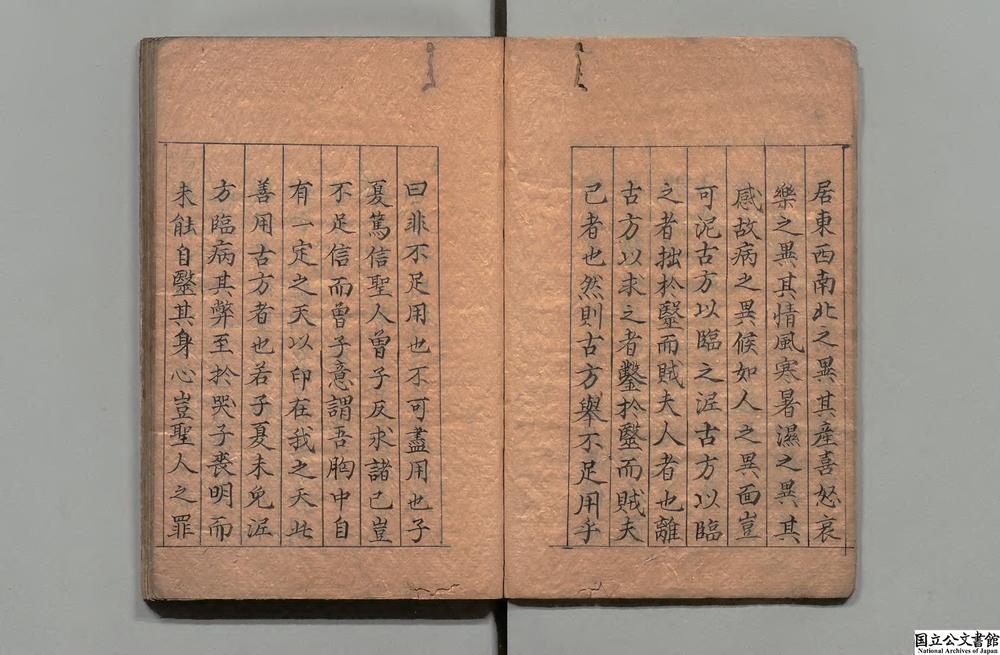 居東西南北之異其產喜怒哀
樂之異其情風寒暑濕之異其
感故病之異候如人之異面豈
可泥古方以臨之泥古方以臨
之者拙於毉而賊夫人者也離
古方以求之者鑿於毉而賊夫
己者也然則古方舉不足用乎
曰非不足用也不可盡用也子
夏篤信聖人曾子反求諸己豈
不足信而曾子意謂吾胸中自
有一定之天以印在我之天此
善用古方者也若子夏未免泥
方臨病其弊至於哭子喪明而
未能自毉其身心豈聖人之罪
国立公文書館
National Archives of Japan